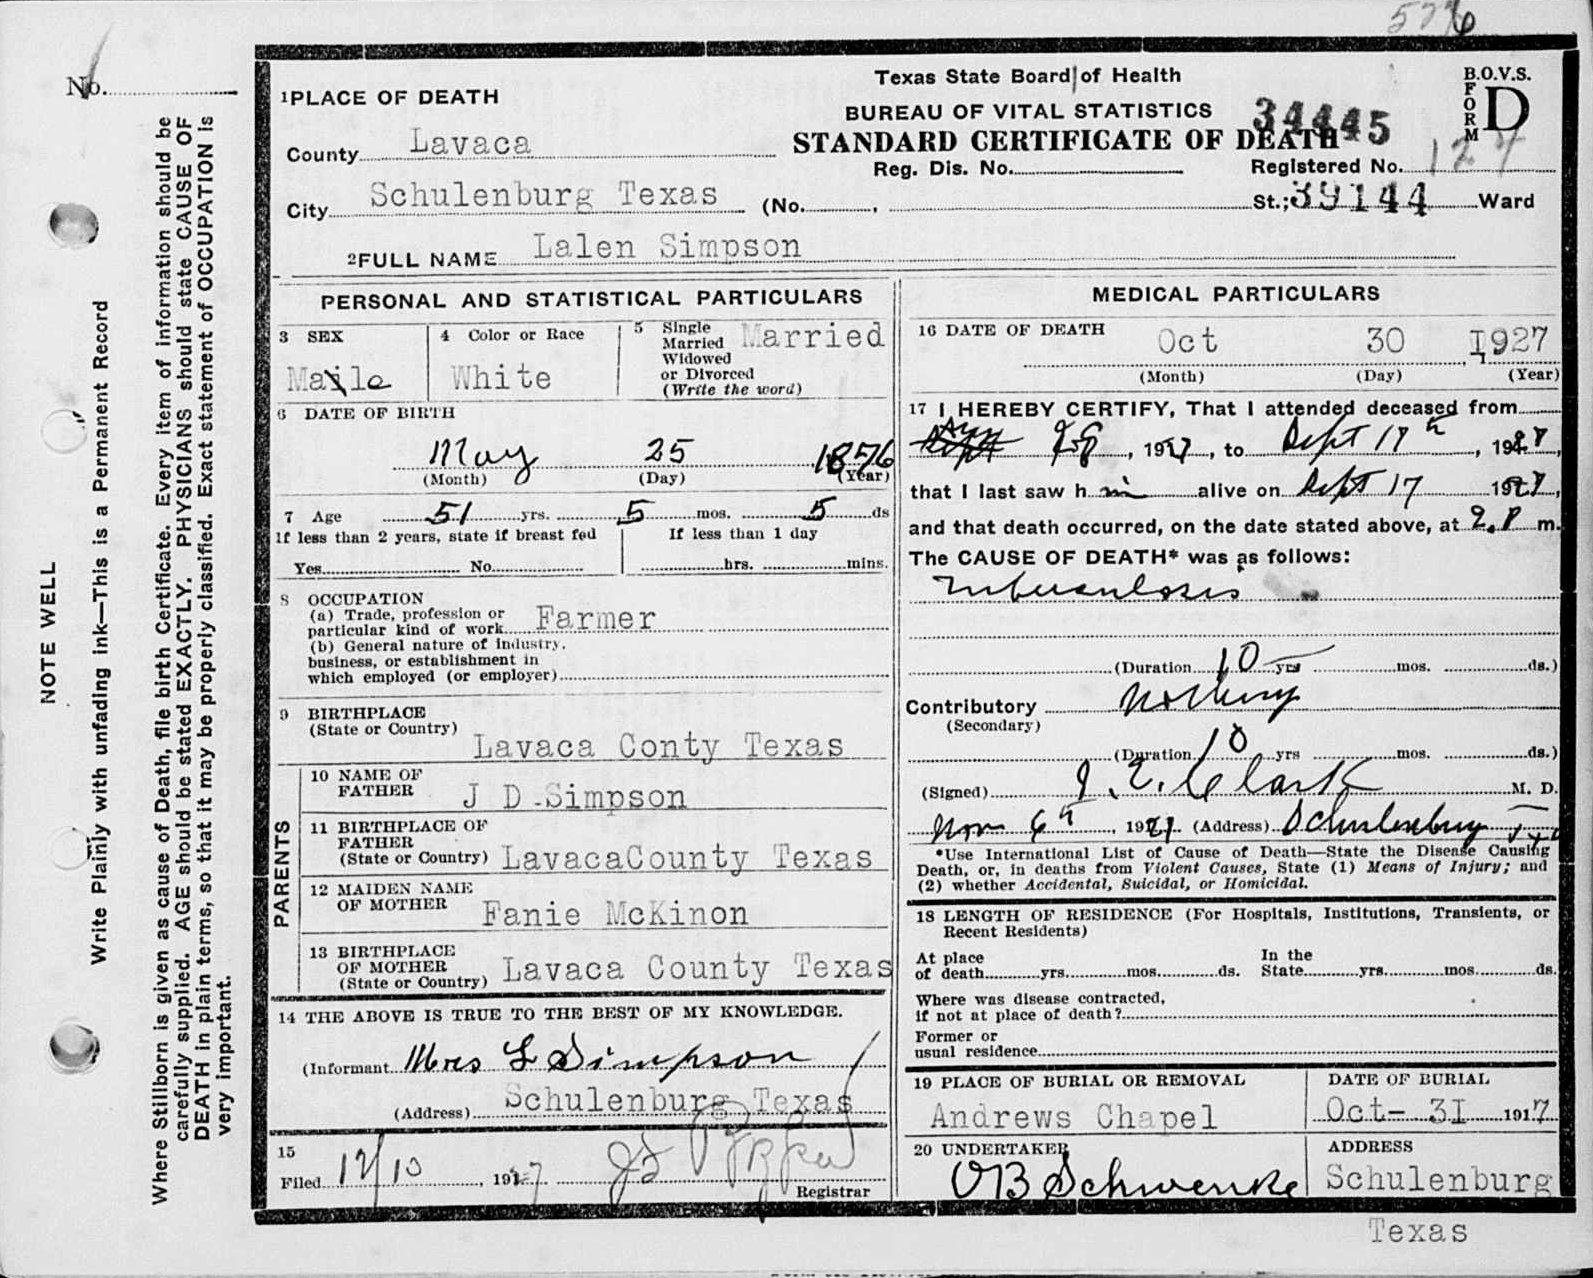 5776
No.
Texas State Board of Health
B.O.V.S.
FORM D
1 PLACE OF DEATH
BUREAU OF VITAL STATISTICS
34445
STANDARD CERTIFICATE OF DEATH
County Lavaca
Reg. Dis. No. Registered No. 127
City Schulenburg Texas (No. , St.; 39144 Ward
2 FULL NAME Lalen Simpson
PERSONAL AND STATISTICAL PARTICULARS
3 SEX
Maxle
4 Color or Race
White
5 Single
Married
Widowed
or Divorced
(Write the word)
Married
6 DATE OF BIRTH
May 25 1876
(Month) (Day) (Year)
7 Age 51 yrs. 5 mos. 5 ds
If less than 2 years, state if breast fed
Yes No
If less than 1 day
hrs. mins.
8 OCCUPATION
(a) Trade, profession or
particular kind of work Farmer
(b) General nature of industry,
business, or establishment in
which employed (or employer)
9 BIRTHPLACE
(State or Country)
Lavaca Conty Texas
PARENTS
10 NAME OF
FATHER J D Simpson
11 BIRTHPLACE OF
FATHER
(State or Country) LavacaCounty Texas
12 MAIDEN NAME
OF MOTHER Fanie McKinon
13 BIRTHPLACE
OF MOTHER
(State or Country) Lavaca County Texas
14 THE ABOVE IS TRUE TO THE BEST OF MY KNOWLEDGE.
(Informant Mrs L Simpson
(Address) Schulenburg Texas
15
Filed 12/10, 1927
Registrar
MEDICAL PARTICULARS
16 DATE OF DEATH Oct 30 1927
(Month) (Day) (Year)
17 I HEREBY CERTIFY, That I attended deceased from
Aug 28, 1927, to Sept 17th, 1927,
that I last saw him alive on Sept 17 1927,
and that death occurred, on the date stated above, at 2.P m.
The CAUSE OF DEATH* was as follows:
Tuberculosis
(Duration 10 yrs mos. ds.)
Contributory Nothing
(Secondary)
(Duration 10 yrs mos. ds.)
(Signed) I. E. Clark M. D.
Nov 6th, 1927 (Address) Schulenburg Tex
*Use International List of Cause of Death—State the Disease Causing
Death, or, in deaths from Violent Causes, State (1) Means of Injury; and
(2) whether Accidental, Suicidal, or Homicidal.
18 LENGTH OF RESIDENCE (For Hospitals, Institutions, Transients, or
Recent Residents)
At place
of death yrs. mos. ds.
In the
State yrs. mos. ds.
Where was disease contracted,
if not at place of death?
Former or
usual residence
19 PLACE OF BURIAL OR REMOVAL
Andrews Chapel
DATE OF BURIAL
Oct- 3I 1917
20 UNDERTAKER
OB Schwenke
ADDRESS
Schulenburg
Texas
NOTE WELL
Write Plainly with unfading ink—This is a Permanent Record
Where Stillborn is given as cause of Death, file birth Certificate. Every item of information should be
carefully supplied. AGE should be stated EXACTLY. PHYSICIANS should state CAUSE OF
DEATH in plain terms, so that it may be properly classified. Exact statement of OCCUPATION is
very important.